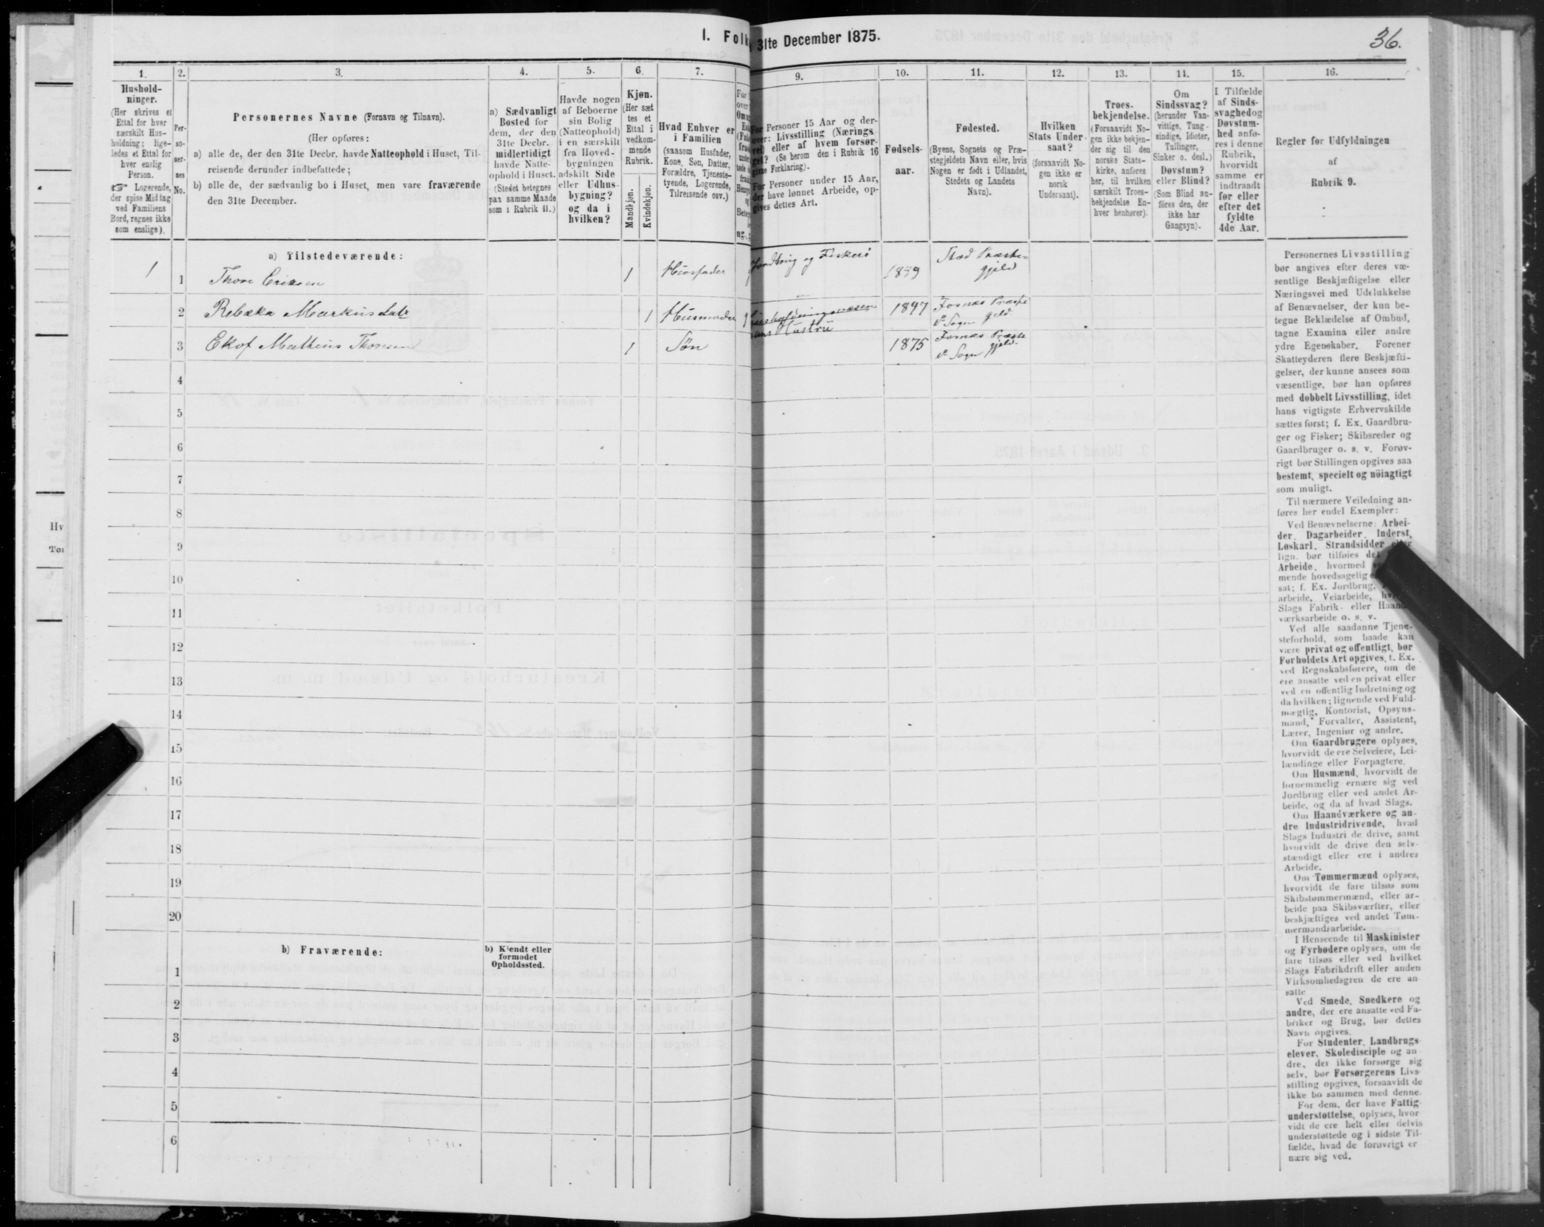 I. Folk
31te December 1875.
36.
1.
2.
3.
4.
5.
6.
7.
9.
10.
11.
12.
13.
14.
15.
16.
Hushold-
ninger.
(Her skrives et
Ettal for hver
særskilt Hus-
holdning; lige-
ledes et Ettal for
hver enslig
Person.
☞ Logerende,
der spise Middag
ved Familiens
Bord, regnes ikke
som enslige).
Per-
so-
ner-
nes
No.
Personernes Navne (Fornavn og Tilnavn).
(Her opføres:
a) alle de, der den 31te Decbr. havde Natteophold i Huset, Til-
reisende derunder indbefattede;
b) alle de, der sædvanlig bo i Huset, men vare fraværende
den 31te December.
a) Sædvanligt
Bosted for
dem, der den
31te Decbr.
midlertidigt
havde Natte-
ophold i Huset.
(Stedet betegnes
paa samme Maade
som i Rubrik 11.)
Havde nogen
af Beboerne
sin Bolig
(Natteophold)
i en særskilt
fra Hoved-
bygningen
adskilt Side
eller Udhus-
bygning?
og da i
hvilken?
Kjøn.
(Her sæt
tes et
Ettal i
vedkom-
mende
Rubrik.
Mandkjøn.
Kvindekjøn.
Hvad Enhver er
i Familien
(saasom Husfader,
Kone, Søn, Datter,
Forældre, Tjeneste-
tyende, Logerende,
Tilreisende osv.)
Personer 15 Aar og der-
over: Livsstilling (Nærings-
vei) eller af hvem forsør-
get? (Se herom den i Rubrik 16
givne Forklaring).
For Personer under 15 Aar,
der have lønnet Arbeide, op-
gives dettes Art.
Fødsels-
aar.
Fødested.
(Byens, Sognets og Præ-
stegjeldets Navn eller, hvis
Nogen er født i Udlandet,
Stedets og Landets
Navn).
Hvilken
Stats Under-
saat?
(forsaavidt No-
gen ikke er
norsk
Undersaat).
Troes-
bekjendelse.
(Forsaavidt No-
gen ikke bekjen-
der sig til den
norske Stats-
kirke, anføres
her, til hvilken
særskilt Troes-
bekjendelse En-
hver henhører).
Om
Sindssvag?
(herunder Van-
vittige, Tung-
sindige, Idioter,
Tullinger,
Sinker o. desl.)
Døvstum?
eller Blind?
(Som Blind an-
føres den, der
ikke har
Gangsyn).
I Tilfælde
af Sinds-
svaghed og
Døvstum-
hed anfø-
res i denne
Rubrik,
hvorvidt
samme er
indtraadt
før eller
efter det
fyldte
4de Aar.
Regler for Udfyldningen
af
Rubrik 9.
a) Tilstedeværende:
1 1 Thore Ericsen 1 Husfader Jordbrug og Fiskeri 1849 Stad Præste-
gjeld
2 Rebæka Markusdatr 1 Husmoder 1847 Prest
Sogn gjeld
Hustru
3 Mathæus Thoresen 1 Søn 1875
Sogn gjeld
4
5
6
7
8
9
10
11
12
13
14
15
16
17
18
19
20
b) Fraværende:
b) Kjendt eller
formodet
Opholdssted.
1
2
3
4
5
6
Personernes Livsstilling
bør angives efter deres væ-
sentlige Beskjæftigelse eller
Næringsvei med Udelukkelse
af Benævnelser, der kun be-
tegne Beklædelse af Ombud,
tagne Examina eller andre
ydre Egenskaber. Forener
Skatteyderen flere Beskjæfti-
gelser, der kunne ansees som
væsentlige, bør han opføres
med dobbelt Livsstilling, idet
hans vigtigste Erhvervskilde
sættes først; f. Ex. Gaardbru-
ger og Fisker; Skibsreder og
Gaardbruger o. s. v. Forøv-
rigt bør Stillingen opgives saa
bestemt, specielt og nöiagtigt
som muligt.
Til nærmere Veiledning an-
føres her endel Exempler:
Ved Benævnelserne: Arbei-
der, Dagarbeider, Inderst,
Løskarl, Strandsidder eller
lign. bør tilføies det
Arbeide, hvormed
mende hovedsagelig
sat; f. Ex. Jordbrug,
arbeide, Veiarbeide,
Slags Fabrik- eller Haand-
værksarbeide o. s. v.
Ved alle saadanne Tjene-
steforhold, som baade kan
være privat og offentligt, bør
Forholdets Art opgives, f. Ex.
ved Regnskabsførere, om de
ere ansatte ved en privat eller
ved en offentlig Indretning og
da hvilken; lignende ved Fuld-
mægtig, Kontorist, Opsyns-
mand, Forvalter, Assistent,
Lærer, Ingeniør og andre.
Om Gaardbrugere oplyses,
hvorvidt de ere Selveiere, Lei-
lændinge eller Forpagtere.
Om Husmænd, hvorvidt de
fornemmelig ernære sig ved
Jordbrug eller ved andet Ar-
beide, og da af hvad Slags.
Om Haandværkere og an-
dre Industridrivende, hvad
Slags Industri de drive, samt
hvorvidt de drive den selv-
stændigt eller ere i andres
Arbeide.
Om Tømmermænd oplyses,
hvorvidt de fare tilsøs som
Skibstømmermænd, eller ar-
beide paa Skibsværfter, eller
beskjæftiges ved andet Tøm-
mermandsarbeide.
I Henseende til Maskinister
og Fyrbødere oplyses, om de
fare tilsøs eller ved hvilket
Slags Fabrikdrift eller anden
Virksomhedsgren de ere an-
satte
Ved Smede, Snedkere og
andre, der ere ansatte ved Fa-
briker og Brug, bør dettes
Navn opgives.
For Studenter, Landbrugs-
elever, Skoledisciple og an-
dre, der ikke forsørge sig
selv, bør Forsørgerens Livs-
stilling opgives, forsaavidt de
ikke bo sammen med denne.
For dem, der have Fattig-
understøttelse, oplyses, hvor-
vidt de ere helt eller delvis
understøttede og i sidste Til-
fælde, hvad de forøvrigt er-
nære sig ved.